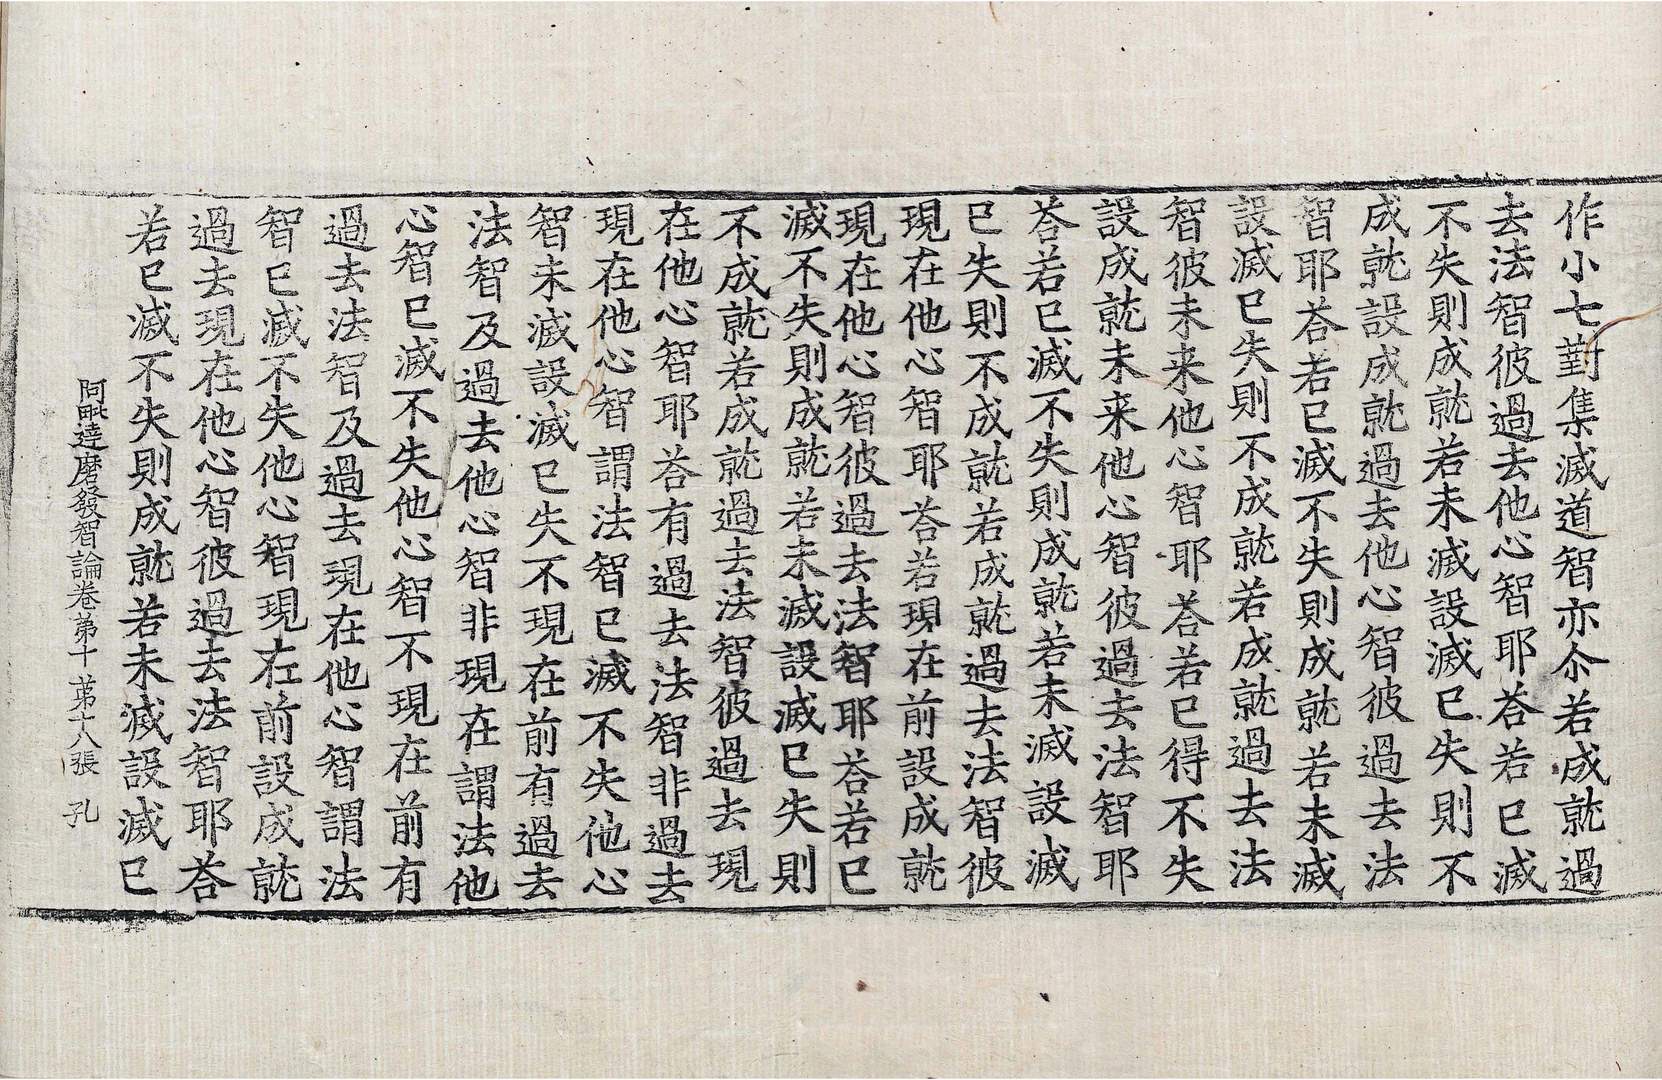 作小七對集滅道智亦尒若成就過
去法智彼過去他心智耶荅若已滅
不失則成就若未滅設滅已失則不
成就設成就過去他心智彼過去法
智耶荅若已滅不失則成就若未滅
設滅已失則不成就若成就過去法
智彼未来他心智耶荅若已得不失
設成就未来他心智彼過去法智耶
荅若已滅不失則成就若未滅設滅
已失則不成就若成就過去法智彼
現在他心智耶荅若現在前設成就
現在他心智彼過去法智耶荅若已
滅不失則成就若未滅設滅已失則
不成就若成就過去法智彼過去現
在他心智耶荅有過去法智非過去
現在他心智謂法智已滅不失他心
智未滅設滅已失不現在前有過去
法智及過去他心智非現在謂法他
心智已滅不失他心智不現在前有
過去法智及過去現在他心智謂法
智已滅不失他心智現在前設成就
過去現在他心智彼過去法智耶荅
若已滅不失則成就若未滅設滅已
阿毗達磨發智論卷第十 第十八張 孔